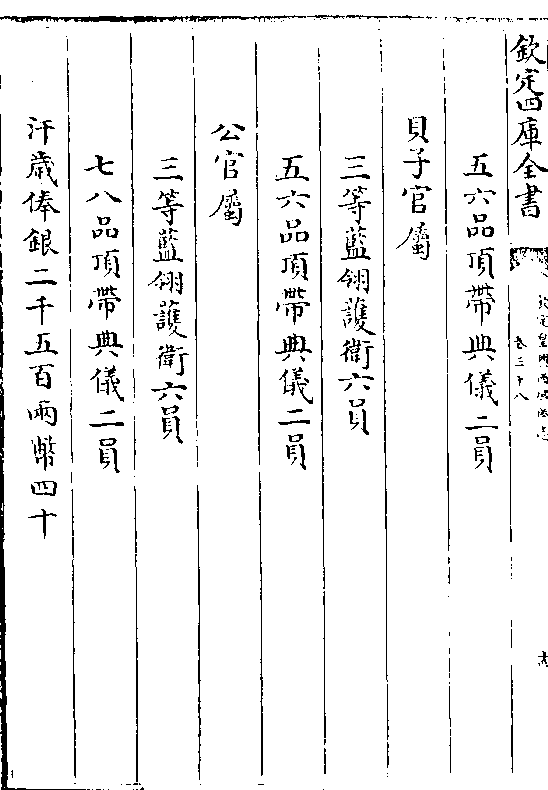 欽定四庫全書
欽定皇輿西域圖志
卷三十八
五六品頂帶典儀二員
貝子官屬
三等藍翎護衛六員
五六品頂帶典儀二員
公官屬
三等藍翎護衛六員
七八品頂帶典儀二員
汗歲俸銀二千五百兩幣四十